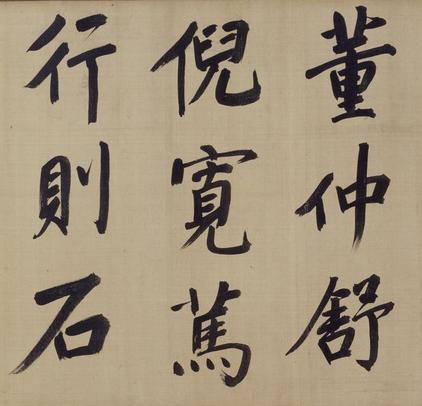 董仲舒
倪寬䔍
行則石